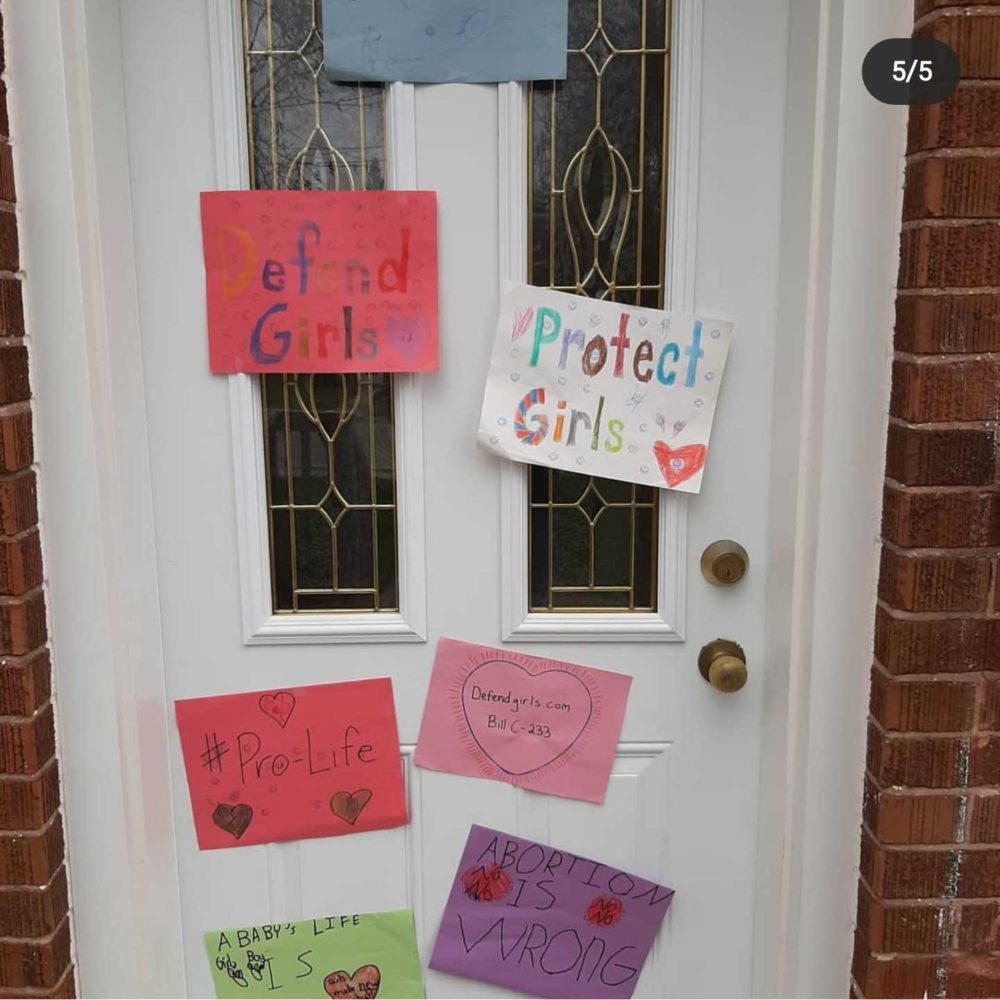 5/5
Defend
Girls
Protect
Girls
#Pro-Life
Defendgirls.com
Bill C-233
ABORTION
IS
WRONG
No
No
No
No
A BABY's LIFE
Girl Boy
IS